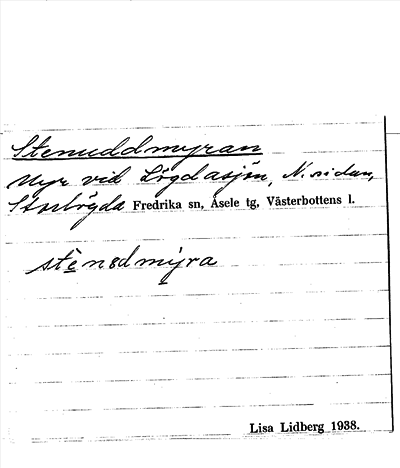 Stenuddmyran
Myr vid Lögdasjön, N. sidan,
Storlögda Fredrika sn, Åsele tg, Västerbottens l.
stènɷdmýra
Lisa Lidberg 1938.